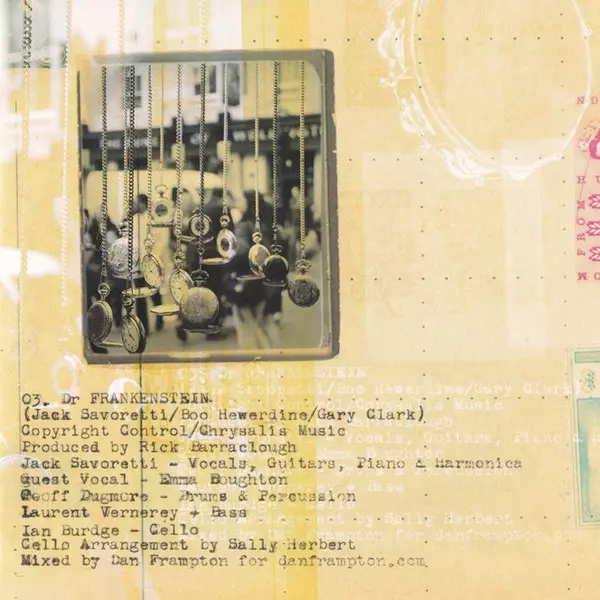 03. Dr FRANKENSTEIN
(Jack Savoretti/Boo Hewerdine/Gary Clark)
Copyright Control/Chrysalis Music
Produced by Rick Barraclough
Jack Savoretti - Vocals, Guitars, Piano & Harmonica
Guest Vocal - Emma Boughton
Geoff Dugmore - Drums & Percussion
Laurent Vernerey - Bass
Ian Burdge - Cello
Cello Arrangement by Sally Herbert
Mixed by Dan Frampton for danframpton.com
FROM